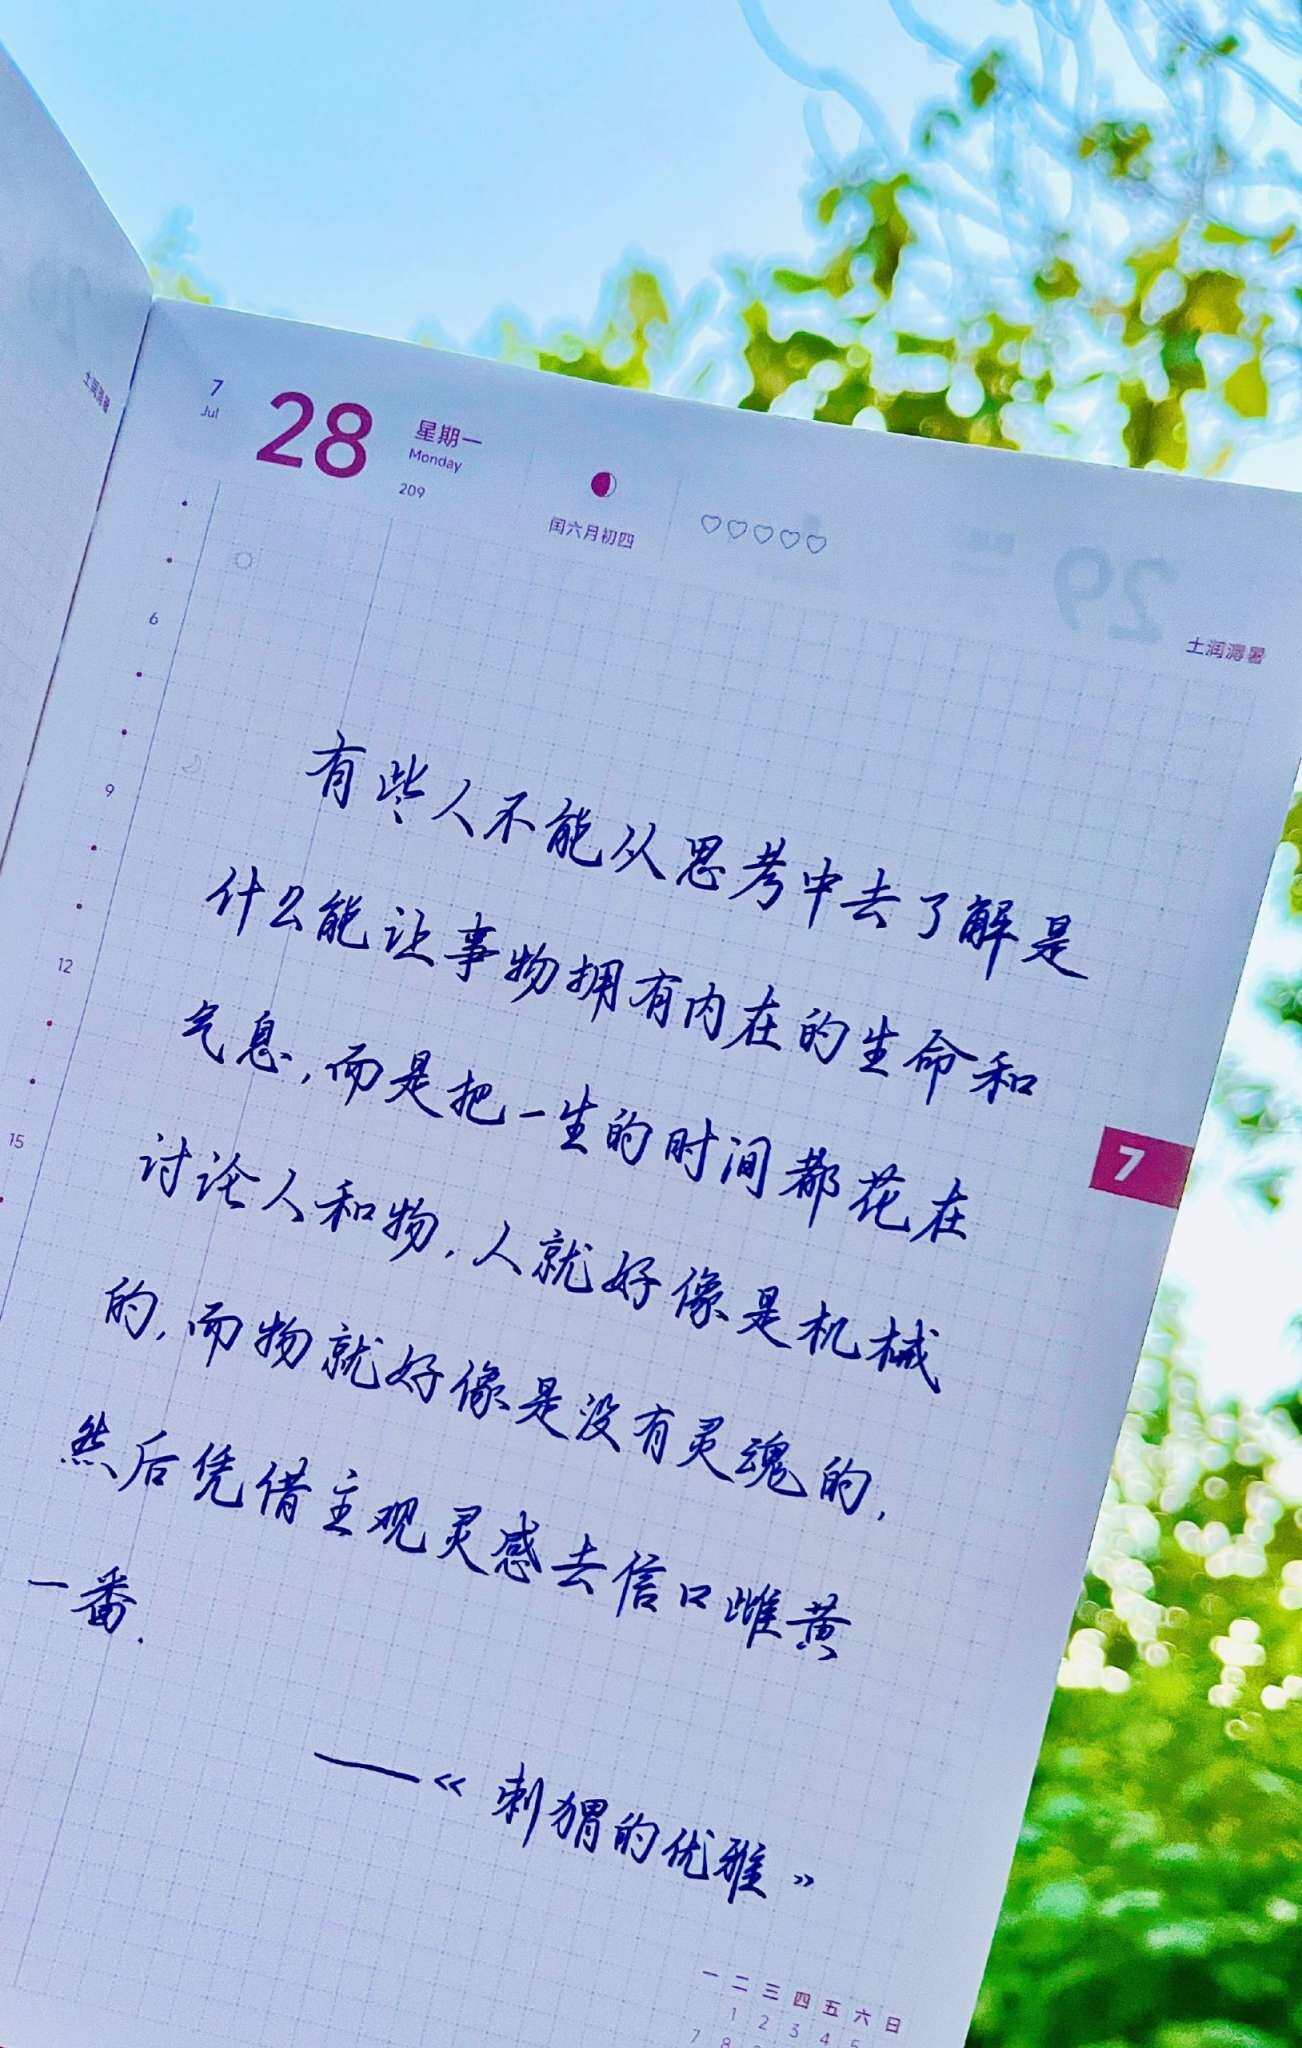 土润溽暑
7
Jul
28
星期一
Monday
209
闰六月初四
29
土润溽暑
6
9
12
15
7
有些人不能从思考中去了解是
什么能让事物拥有内在的生命和
气息,而是把一生的时间都花在
讨论人和物,人就好像是机械
的,而物就好像是没有灵魂的,
然后凭借主观灵感去信口雌黄
一番.
——《刺猬的优雅》
一 二 三 四 五 六 日
1 2 3 4 5
7 8